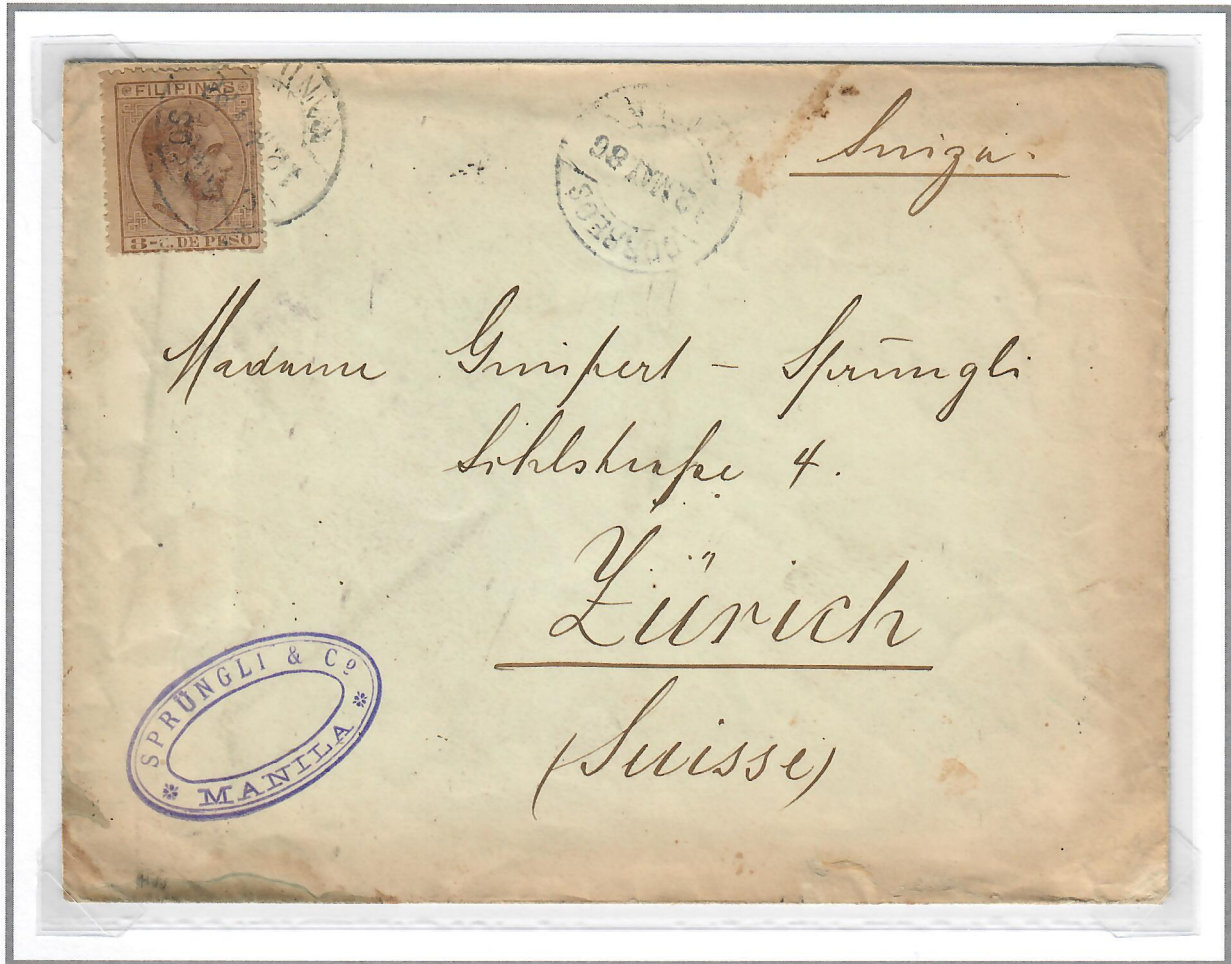 FILIPINAS
8-C. DE PESO
CORREOS
12 MAY 86
Suiza.
Madame Gimpert - Sprüngli
Sihlstraße 4.
Zürich
(Suisse)
SPRÜNGLI & Cº
MANILA